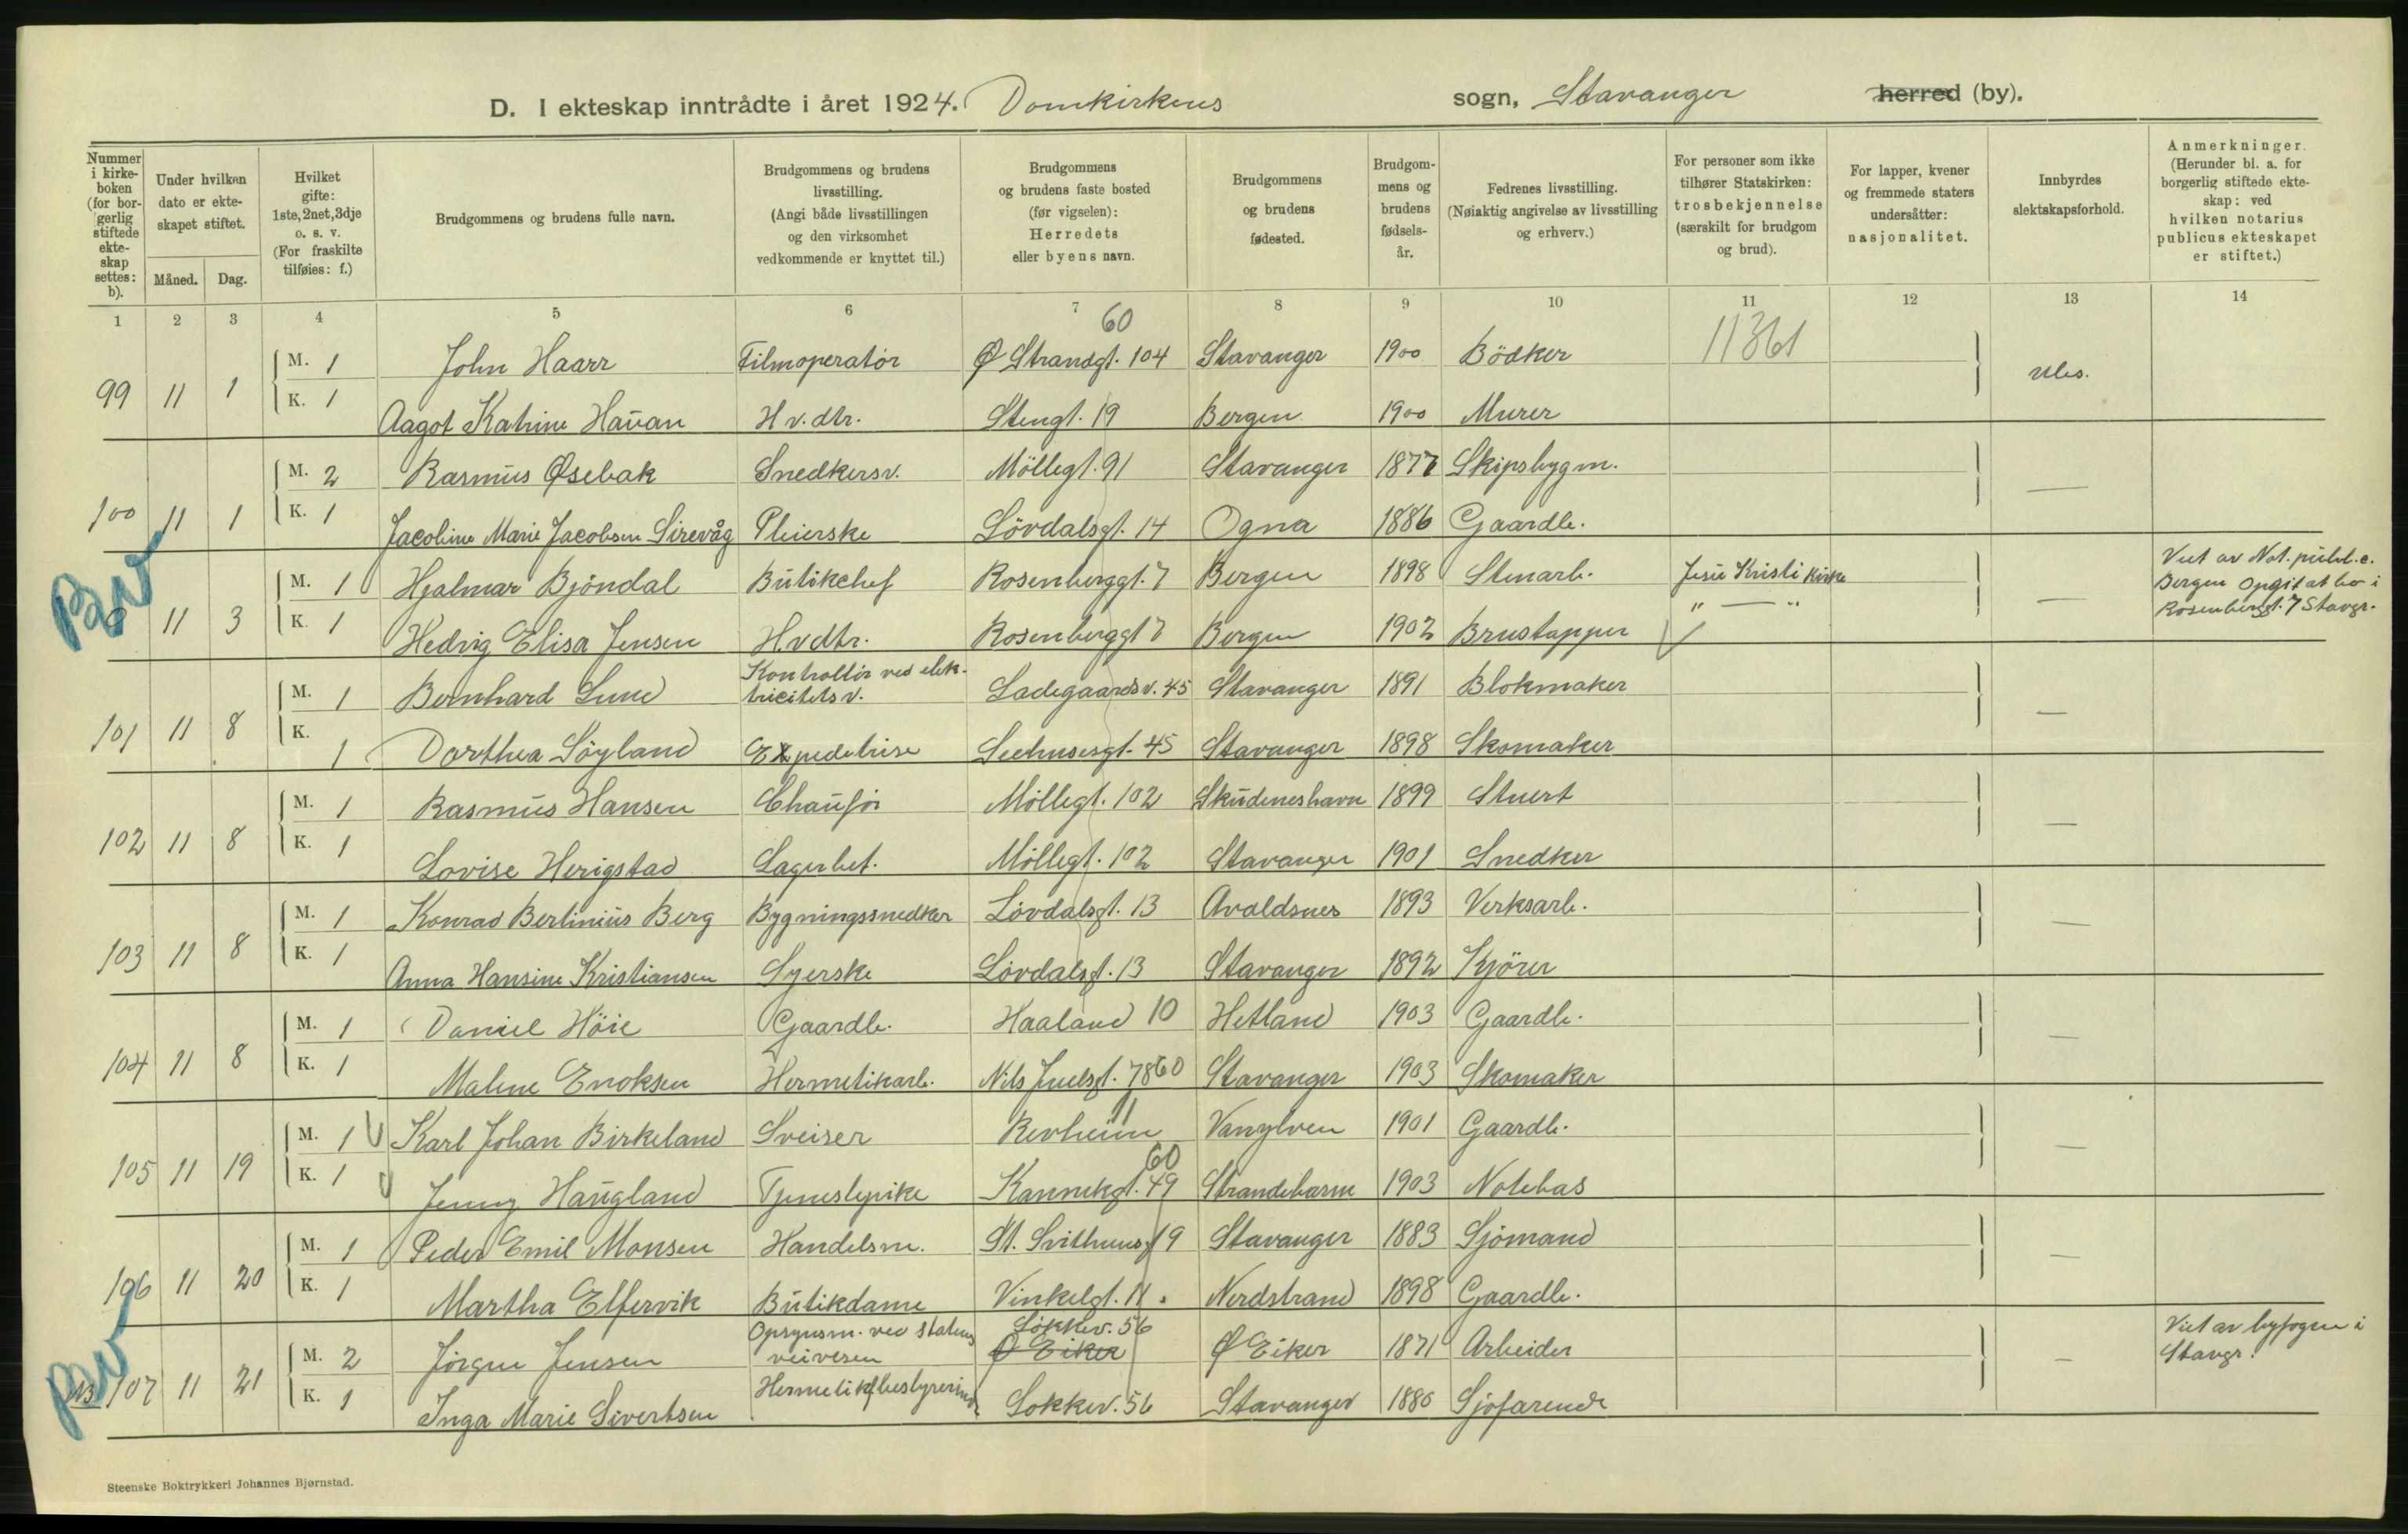 D. I ekteskap inntrådte i året 1924. Domkirkens sogn, Stavanger herred (by).
Nummer i kirkeboken (for borgerlig stiftede ekteskap settes: b).
Under hvilken dato er ekteskapet stiftet.
Måned. Dag.
Hvilket gifte: 1ste, 2net, 3dje o. s. v. (For fraskilte tilføies: f.)
Brudgommens og brudens fulle navn.
Brudgommens og brudens livsstilling. (Angi både livsstillingen og den virksomhet vedkommende er knyttet til.)
Brudgommens og brudens faste bosted (før vigselen): Herredets eller byens navn.
Brudgommens og brudens fødested.
Brudgommens og brudens fødselsår.
Fedrenes livsstilling. (Nøiaktig angivelse av livsstilling og erhverv.)
For personer som ikke tilhører Statskirken: trosbekjennelse (særskilt for brudgom og brud).
For lapper, kvener og fremmede staters undersåtter: nasjonalitet.
Innbyrdes slektskapsforhold.
Anmerkninger. (Herunder bl. a. for borgerlig stiftede ekteskap: ved hvilken notarius publicus ekteskapet er stiftet.)
1 2 3 4 5 6 7 8 9 10 11 12 13 14
60
99 11 1 M. 1 John Haarr Filmoperatör Ø Strandgt. 104 Stavanger 1900 Bödker 11361
K. 1 Aagot Katrine Hauan H v. dtr. Stengt. 19 Bergen 1900 Murer
100 11 1 M. 2 Rasmus Øsebak Snedkersv. Möllegt. 91 Stavanger 1877 Skipsbygm. —
K. 1 Jacobine Marie Jacobsen Sirevåg Pleierske Lövdalsgt. 14 Ogna 1886 Gaardb.
BV
11 3 M. 1 Hjalmar Bjöndal Butikchef Rosenberggt. 7 Bergen 1898 Stenarb. Jesu Kristi Kirke — Viet av Not. publ. c. Bergen Opgit at bo i Rosenberggt. 7 Stavgr.
K. 1 Hedvig Elisa Jensen H.v dtr. Rosenberggt 7 Bergen 1902 Brustapper " — "
101 11 8 M. 1 Bernhard Lund Kontrollör ved elektricitetsv. Ladegaardsv. 45 Stavanger 1891 Blokmaker —
K. 1 Dorthea Söyland Expeditrise Seehusesgt. 45 Stavanger 1898 Skomaker
102 11 8 M. 1 Rasmus Hansen Chauför Möllegt. 102 Skudeneshavn 1899 Stuert —
K. 1 Lovise Herigstad Lagerbet. Möllegt. 102 Stavanger 1901 Snedker
103 11 8 M. 1 Konrad Bertinius Berg Bygningssnedker Lövdalsgt. 13 Avaldsnes 1893 Verksarb. —
K. 1 Anna Hansine Kristiansen Syerske Lövdalsgt. 13 Stavanger 1892 Kjörer
104 11 8 M. 1 Daniel Höie Gaardb. Haaland 10 Hetland 1903 Gaardb. —
K. 1 Malene Enoksen Hermetikarb. Nils Juelsgt. 78 60 Stavanger 1903 Skomaker
11
105 11 19 M. 1 Karl Johan Birkeland Sveiser Revheim Vanylven 1901 Gaardb. —
60
K. 1 Jenny Haugland Tjenestepike Kannikgt. 49 Strandebarm 1903 Notebas
106 11 20 M. 1 Peder Emil Monsen Handelsm. St. Svithunsg 19 Stavanger 1883 Sjömand —
K. 1 Martha Elfervik Butikdame Vinkelgt. 11. Nerdstrand 1898 Gaardb.
BV
107 11 21 M. 2 Jörgen Jensen Opsynsm. ved statens veivesen Lökkev. 56 Ø Eiker Ø Eiker 1871 Arbeider — Viet av byfogen i Stavgr.
K. 1 Inga Marie Sivertsen Hermetikfbestyrerinde Lokkev. 56 Stavanger 1880 Sjöfarende
Steenske Boktrykkeri Johannes Bjørnstad.